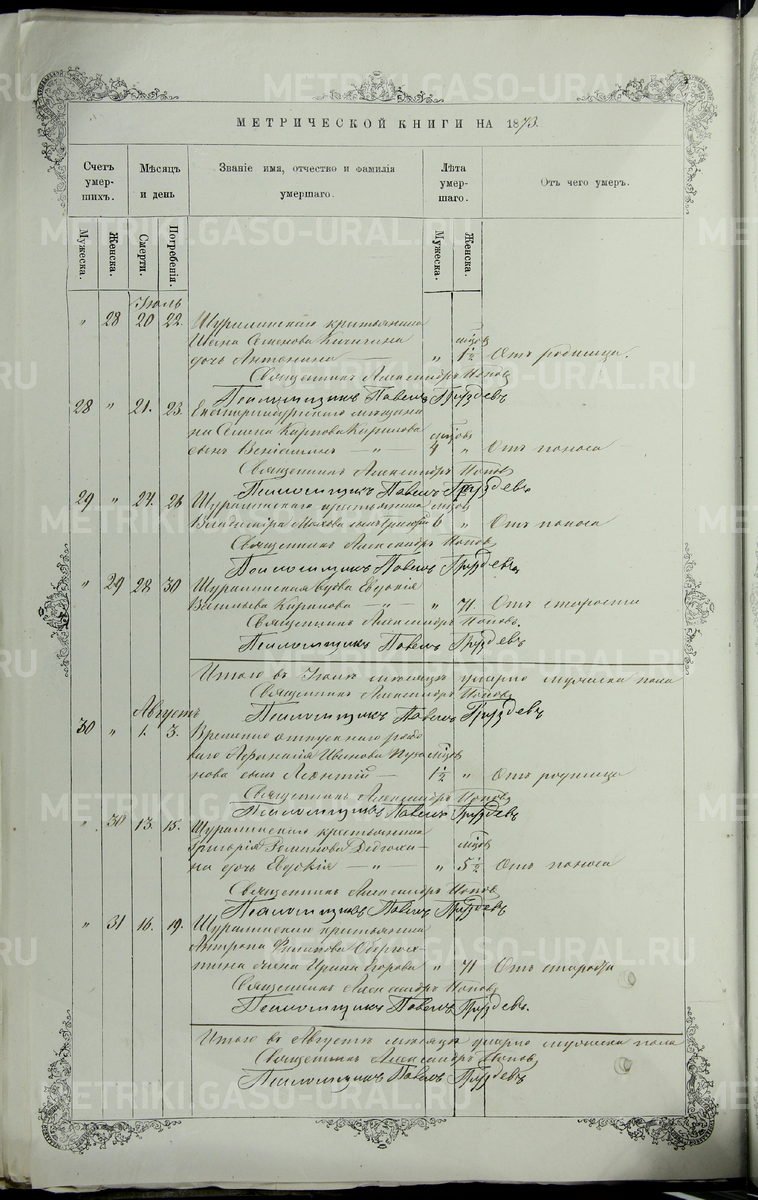 METRIKI.GASO-URAL.RU
МЕТРИЧЕСКОЙ КНИГИ НА 1873.
Счетъ умер- шихъ.
Мѣсяцъ и день
Званіе имя, отчество и фамилія умершаго.
Лѣта умер- шаго.
Отъ чего умеръ.
Мужеска.
Женска.
Смерти.
Погребенія.
Мужеска.
Женска.
Іюль
" 28 20 22. крестьянина
Ивана Семенова
дочь Антонина — " 1½ Отъ родимца.
Священникъ Александръ Попов
Псаломщикъ Павелъ Груздевъ
28 " 21. 23. Екатеринбургскаго мѣщани-
на Карпова
сынъ Веніаминъ — " — 4 " Отъ поноса
Священникъ Александръ Попов
Псаломщикъ Павелъ Груздевъ
29 " 24. 26 крестьянина
Владиміра сынъ 6 " Отъ поноса
Священникъ Александръ Попов
Псаломщикъ Павелъ Груздевъ
" 29 28 30 вдова Евдокія
Васильева — " — " 71. Отъ старости
Священникъ Александръ Попов.
Псаломщикъ Павелъ Груздевъ
Итого въ Іюлѣ мѣсяцѣ умерло мужеска пола
Священникъ Александръ Попов
Псаломщикъ Павелъ Груздевъ
Августъ
30 " 1. 3. Временно отпускнаго рядо-
ваго Афанасія Иванова
нова сынъ Леонтій — 1½ " Отъ родимца
Священникъ Александръ Попов
Псаломщикъ Павелъ Груздевъ
" 30 13. 15. крестьянина
Григорія Романова
на дочь Евдокія — " — " 5½ Отъ поноса
Священникъ Александръ Попов
Псаломщикъ Павелъ Груздевъ
" 31 16. 19. крестьянина
Антропа Филатова
жена Ирина Егорова " 71 Отъ старости
Священникъ Александръ Попов
Псаломщикъ Павелъ Груздевъ.
Итого въ Августѣ мѣсяцѣ умерло мужеска пола
Священникъ Александръ Попов
Псаломщикъ Павелъ Груздевъ